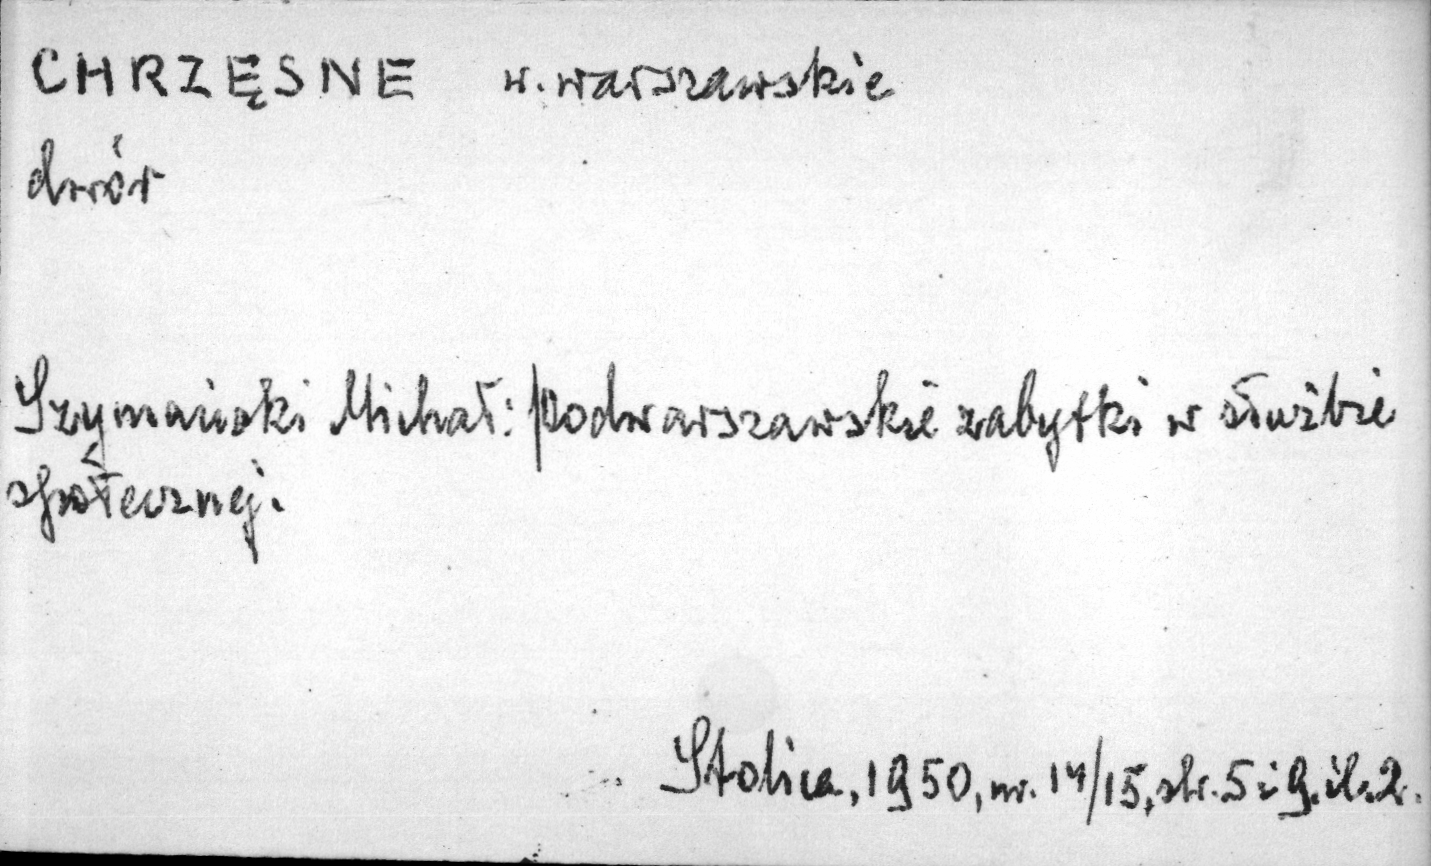 CHRZĘSNE w. warszawskie
dwór
Szymański Michał: Podwarszawskie zabytki w służbie
społecznej.
Stolica, 1950, nr. 14/15, str. 5 i 9. il. 2.